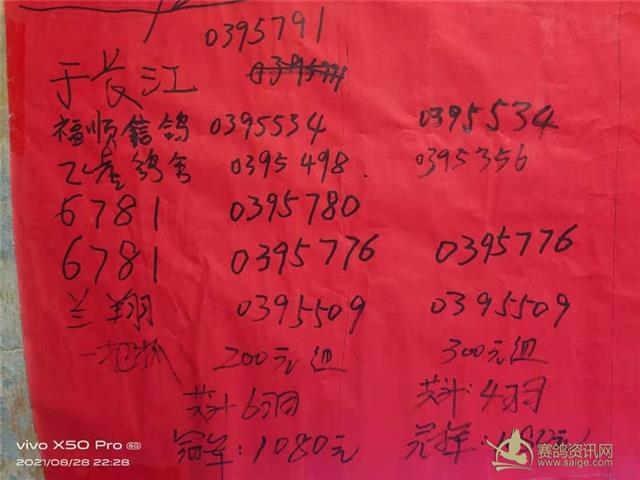 0395791
于长江
福顺信鸽 0395534 0395534
鸽舍 0395498 0395356
6781 0395780
6781 0395776 0395776
兰翔 0395509 0395509
一把抓 200元组 300元组
共计6羽 共计:4羽
冠军:1080元 冠军:
vivo X50 Pro 5G
2021/08/28 22:28
赛鸽资讯网
www.saige.com